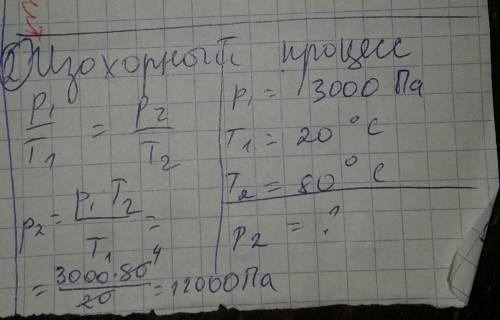 2) Изохорный процесс
P₁/T₁ = P₂/T₂
P₂ = P₁ T₂/T₁ =
= 3000·80⁴/20 = 12000 Па
P₁ = 3000 Па
T₁ = 20°C
T₂ = 80°C
P₂ = ?